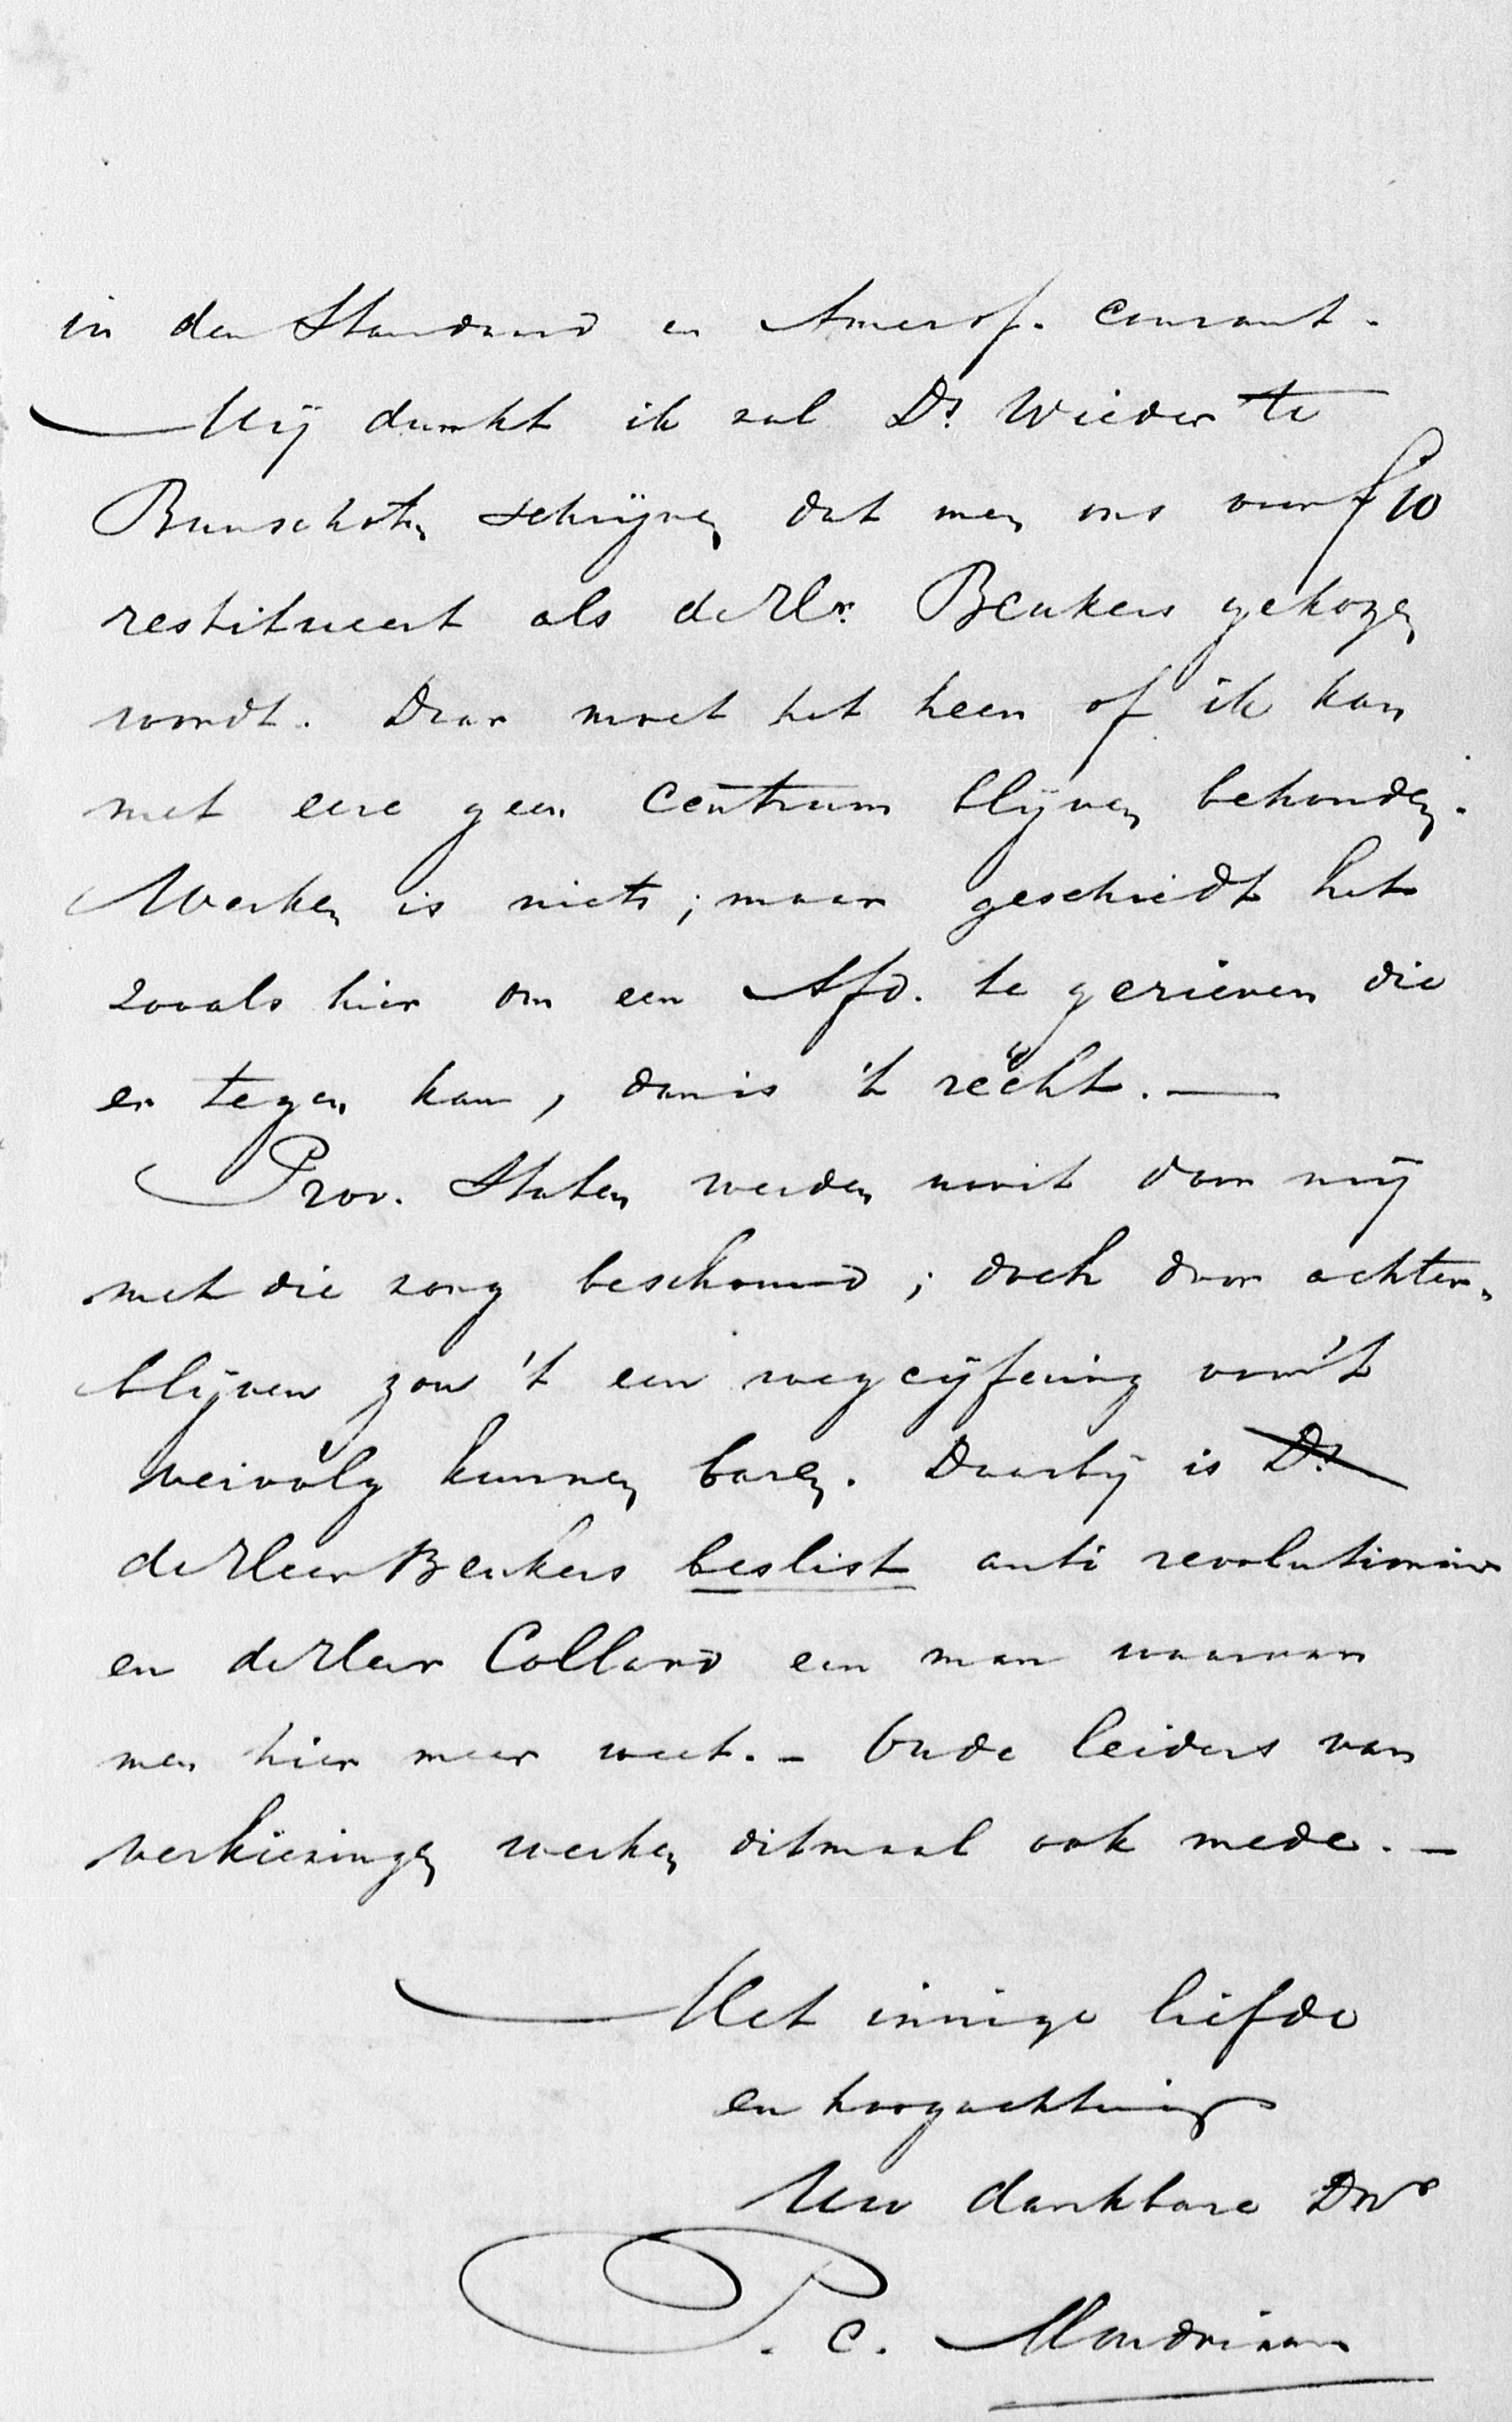 in den Standaard en Amersf. Courant.
Mij dunkt ik zal Ds. Wieder te
Bunschoten schrijven dat men ons voor f 10
restitueert als de Hr. Beukers gekozen
wordt. Daar moet het heen of ik kan
met eere geen Centrum blijven behouden.
Werken is niets; maar geschiedt het
zooals hier om een Afd. te gerieven die
er tegen kan, dan is 't recht. —
Prov. Staten werden nooit door mij
met die zorg beschouwd; doch door achter-
blijven zou 't een wegcijfering van 't
vervolg kunnen baren. Daarbij is Ds.
de Heer Beukers beslist anti revolutionair
en de Heer Collard een man waarvan
men hier meer weet. – Oude leiders van
verkiezingen werken ditmaal ook mede. –
Met innige liefde
en hoogachting
Uw dankbare Dwe
P. C. Mondriaan